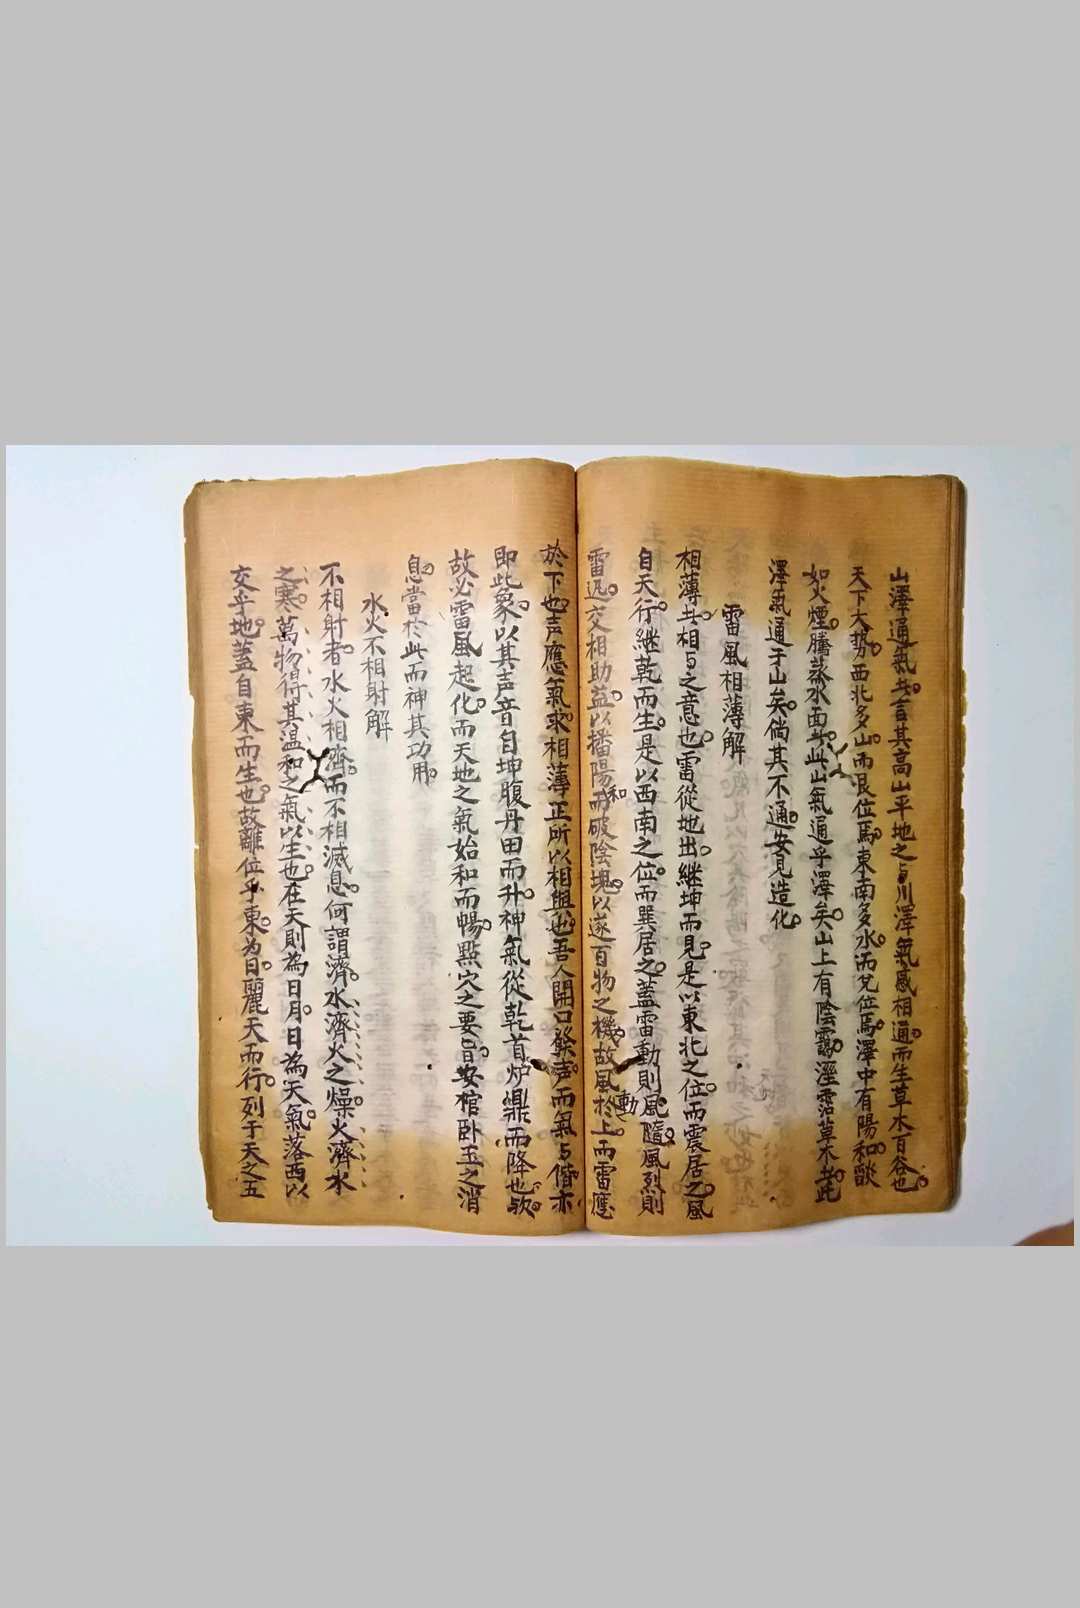 山澤通氣者言其高山平地之与川澤氣感相通而生草木百谷也
天下大勢西北多山而艮位焉東南多水而兌位焉澤中有陽和歊
如火煙騰蒸水面此山氣通乎澤矣山上有陰靄溼霑草木者此
澤氣通于山矣倘其不通安見造化
雷風相薄解
相薄者相与之意也雷從地出継坤而見是以東北之位而震居之風
自天行継乾而生是以西南之位而巽居之蓋雷動則風隨風烈則
雷迅交相助益以播陽和而破陰塊以遂百物之機故風動於上而雷應
於下也声應氣求相薄正所以相與也吾人開口發声而氣与偕亦
即此象以其声音自坤腹丹田而升神氣從乾首炉鼎而降也欤
故必雷風起化而天地之氣始和而暢點穴之要旨安棺卧玉之消
息當於此而神其功用
水火不相射解
不相射者水火相濟而不相滅息何謂濟水濟火之燥火濟水
之寒萬物得其温和之氣以生也在天則為日月日為天氣落西以
交乎地蓋自東而生也故離位乎東為日麗天而行列于天之五